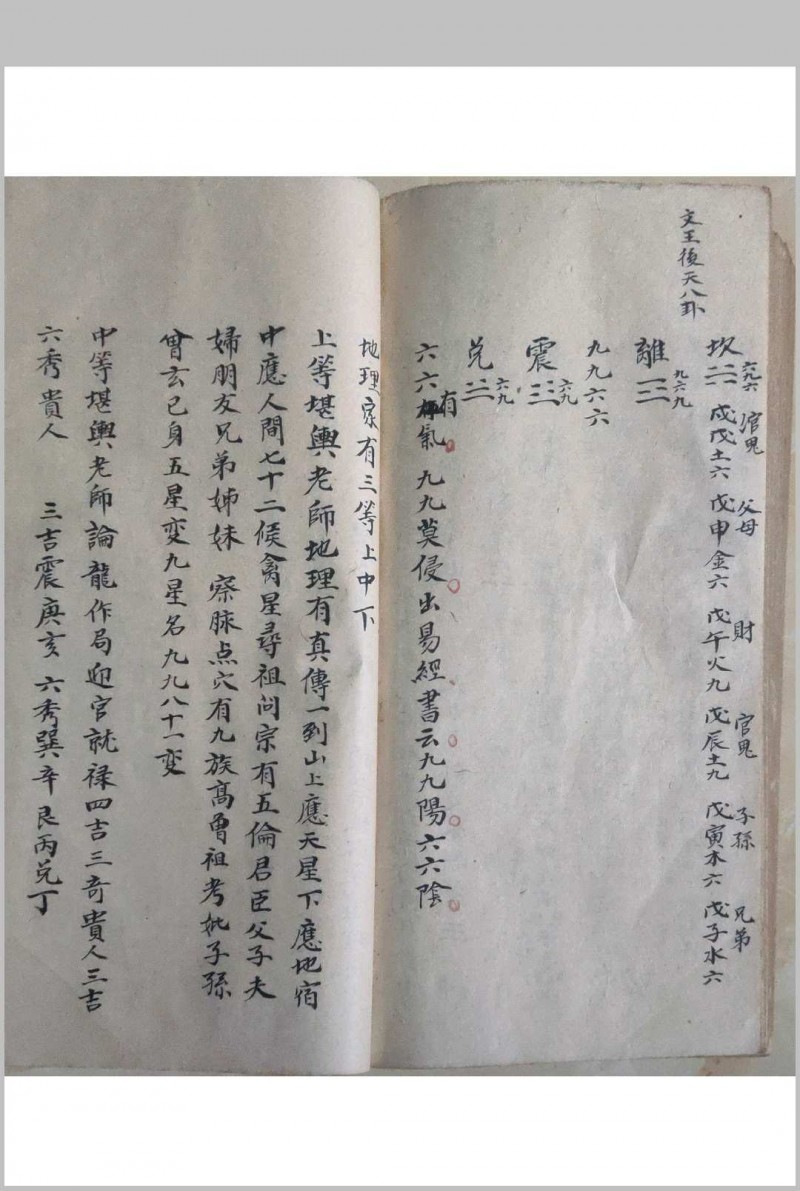 文王後天八卦
官鬼 父母 財 官鬼 子孫 兄弟
坎☵ 六九六 戊戌土六 戊申金六 戊午火九 戊辰土九 戊寅木六 戊子水六
離☲ 九六九
九九六六
震 六九
兌 六九
六六有氣 九九莫侵出易經書云九九陽六六陰
地理家有三等上中下
上等堪輿老師地理有真傳一到山上應天星下應地宿
中應人間七十二候禽星尋祖問宗有五倫君臣父子夫
婦朋友兄弟姊妹 察脉点穴有九族高曾祖考妣子孫
曾玄已身五星变九星名九九八十一变
中等堪輿老師論龍作局迎官就祿四吉三奇貴人三吉
六秀貴人 三吉震庚亥 六秀巽辛艮丙兌丁